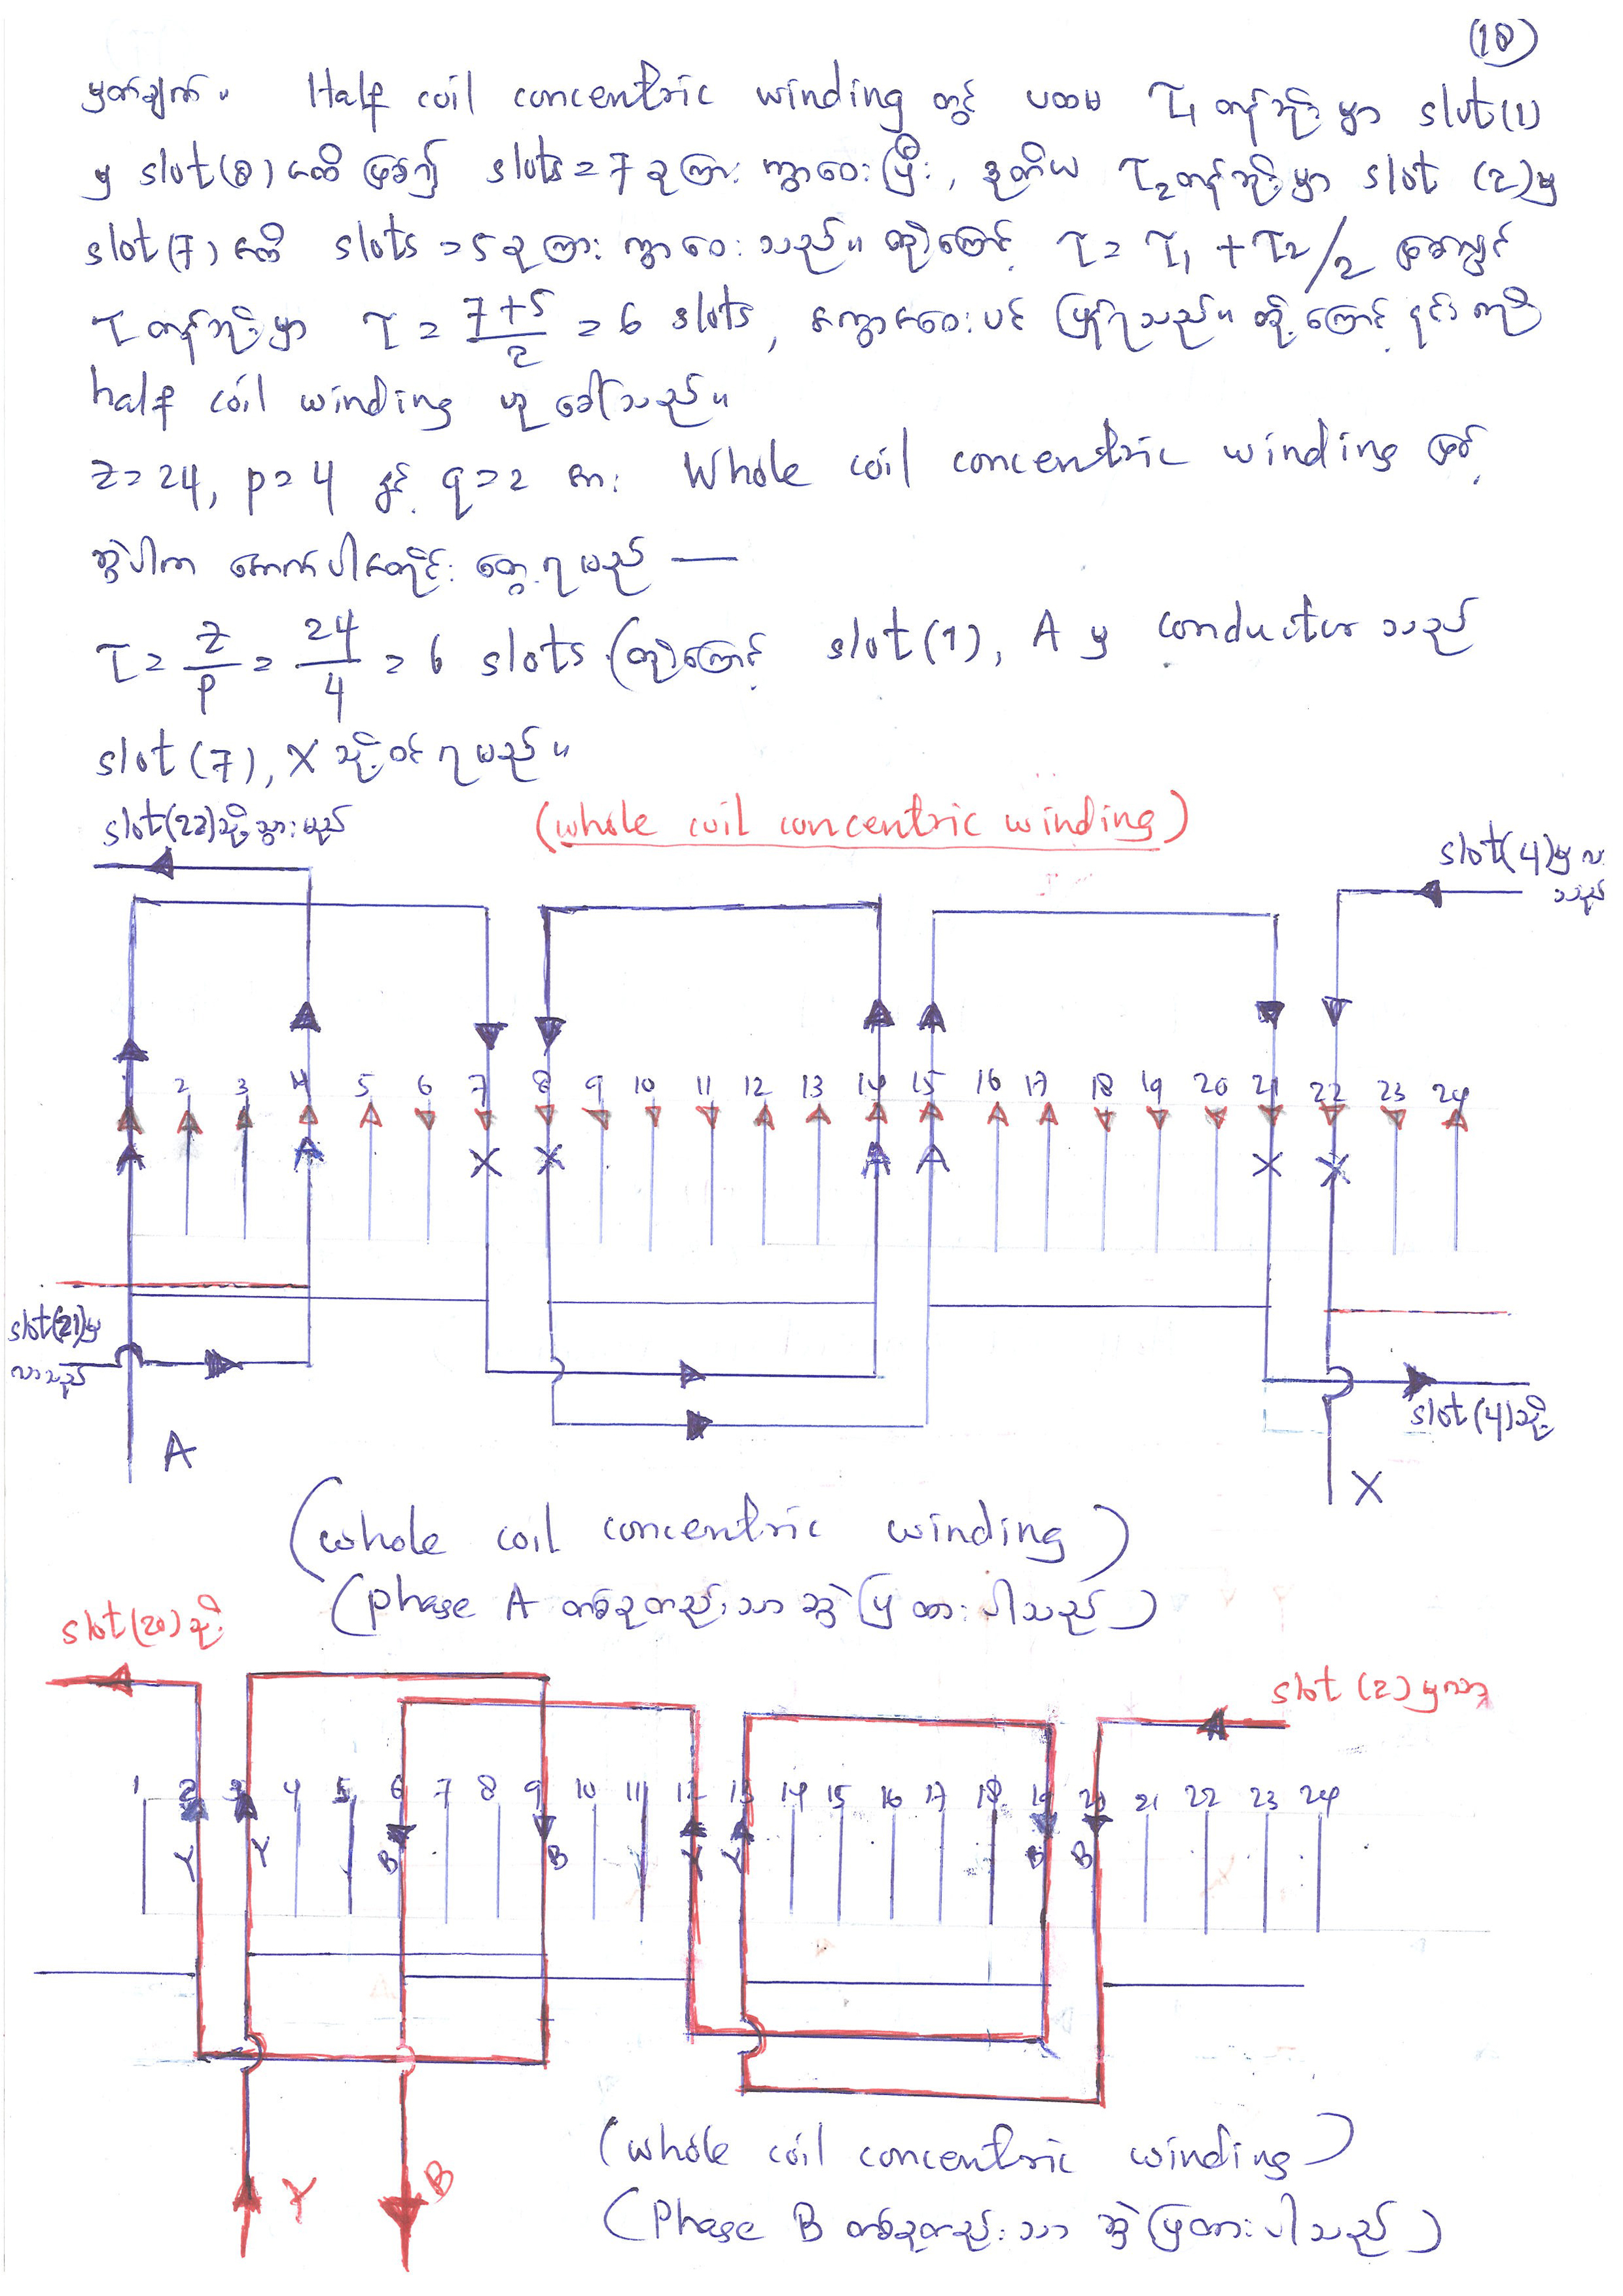 (18)
မှတ်ချက်။ Half coil concentric winding တွင် ပထမ τ₁ တန်ဘိုးမှာ slot(1)
မှ slot(8) ထိ ဖြစ်၍ slots=7 ခုကြား ကွာဝေးပြီး, ဒုတိယ τ₂တန်ဘိုးမှာ slot (2)မှ
slot(7) ထိ slots =5 ခုကြား ကွာဝေးသည်။ ထို့ကြောင့် τ= τ₁ + τ₂/2 ဖြစ်လျှင်
τ တန်ဘိုးမှာ τ = 7+5/2 = 6 slots, အကွာအဝေးပင် ဖြစ်ရသည်။ ထို့ကြောင့် ၎င်းကို
half coil winding ဟု ခေါ်သည်။
z=24, p=4 နှင့် q=2 အား Whole coil concentric winding ဖြင့်
ဆွဲပါက အောက်ပါအတိုင်း တွေ့ရမည် —
τ= z/p = 24/4 = 6 slots (ထို့ကြောင့် slot(1), A မှ conductor သည်
slot(7), X သို့ဝင်ရမည်။
slot(22)သို့သွားမည်
(whole coil concentric winding)
slot(4)မှလာ
သည်
2 3 4 5 6 7 8 9 10 11 12 13 14 15 16 17 18 19 20 21 22 23 24
A A X X A A X X
slot(21)မှ
လာသည်
slot(4)သို့
A
X
(whole coil concentric winding)
(phase A တစ်ခုတည်းသာ ဆွဲပြထားပါသည်)
slot(20)သို့
slot (2)မှလာ
1 2 3 4 5 6 7 8 9 10 11 12 13 14 15 16 17 18 19 20 21 22 23 24
Y Y B B Y Y B B
Y B
(whole coil concentric winding)
(Phase B တစ်ခုတည်းသာ ဆွဲပြထားပါသည်)